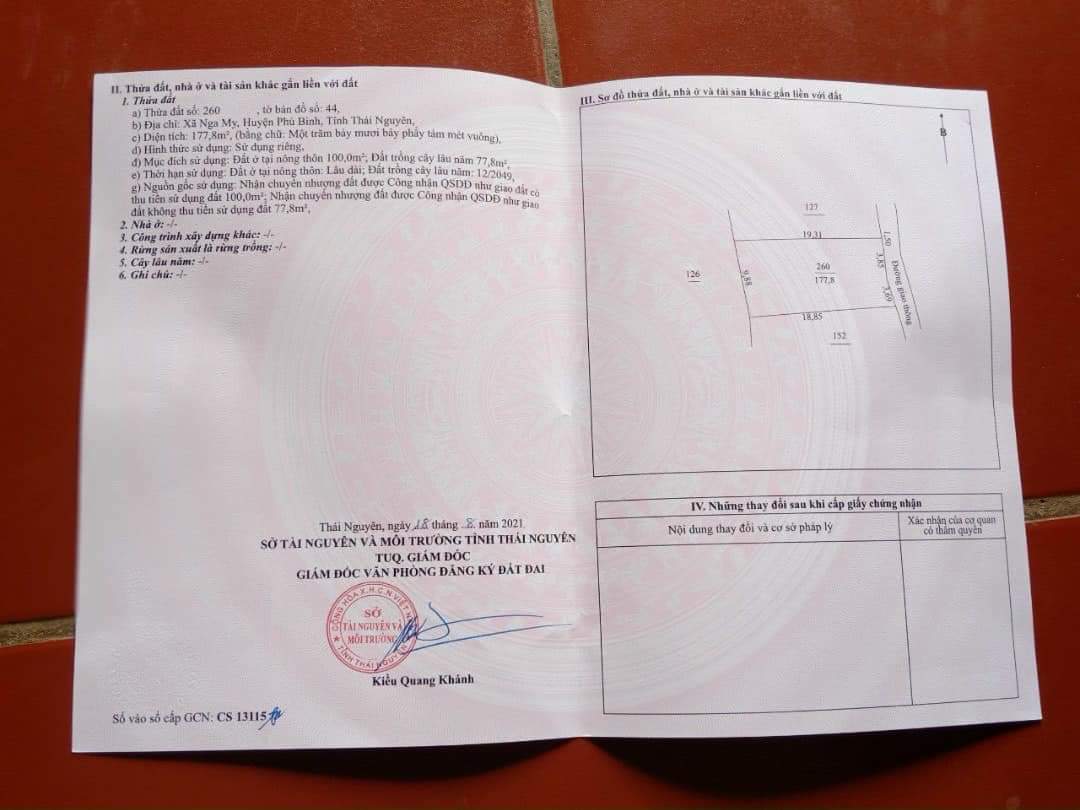 II. Thửa đất, nhà ở và tài sản khác gắn liền với đất
1. Thửa đất
a) Thửa đất số: 260 , tờ bản đồ số: 44,
b) Địa chỉ: Xã Nga My, Huyện Phú Bình, Tỉnh Thái Nguyên,
c) Diện tích: 177,8m², (bằng chữ: Một trăm bảy mươi bảy phẩy tám mét vuông),
d) Hình thức sử dụng: Sử dụng riêng,
đ) Mục đích sử dụng: Đất ở tại nông thôn 100,0m²; Đất trồng cây lâu năm 77,8m²,
e) Thời hạn sử dụng: Đất ở tại nông thôn: Lâu dài; Đất trồng cây lâu năm: 12/2049,
g) Nguồn gốc sử dụng: Nhận chuyển nhượng đất được Công nhận QSDĐ như giao đất có
thu tiền sử dụng đất 100,0m²; Nhận chuyển nhượng đất được Công nhận QSDĐ như giao
đất không thu tiền sử dụng đất 77,8m²,
2. Nhà ở: -/-
3. Công trình xây dựng khác: -/-
4. Rừng sản xuất là rừng trồng: -/-
5. Cây lâu năm: -/-
6. Ghi chú: -/-
Thái Nguyên, ngày 18 tháng 8 năm 2021
SỞ TÀI NGUYÊN VÀ MÔI TRƯỜNG TỈNH THÁI NGUYÊN
TUQ. GIÁM ĐỐC
GIÁM ĐỐC VĂN PHÒNG ĐĂNG KÝ ĐẤT ĐAI
CỘNG HÒA X.H.C.N VIỆT NAM
SỞ
TÀI NGUYÊN VÀ
MÔI TRƯỜNG
TỈNH THÁI NGUYÊN
Kiều Quang Khánh
Số vào sổ cấp GCN: CS 13115
III. Sơ đồ thửa đất, nhà ở và tài sản khác gắn liền với đất
B
127
19,31
1,50
126
9,88
260
177,8
3,85
3,69
Đường giao thông
18,85
152
IV. Những thay đổi sau khi cấp giấy chứng nhận
Nội dung thay đổi và cơ sở pháp lý
Xác nhận của cơ quan
có thẩm quyền